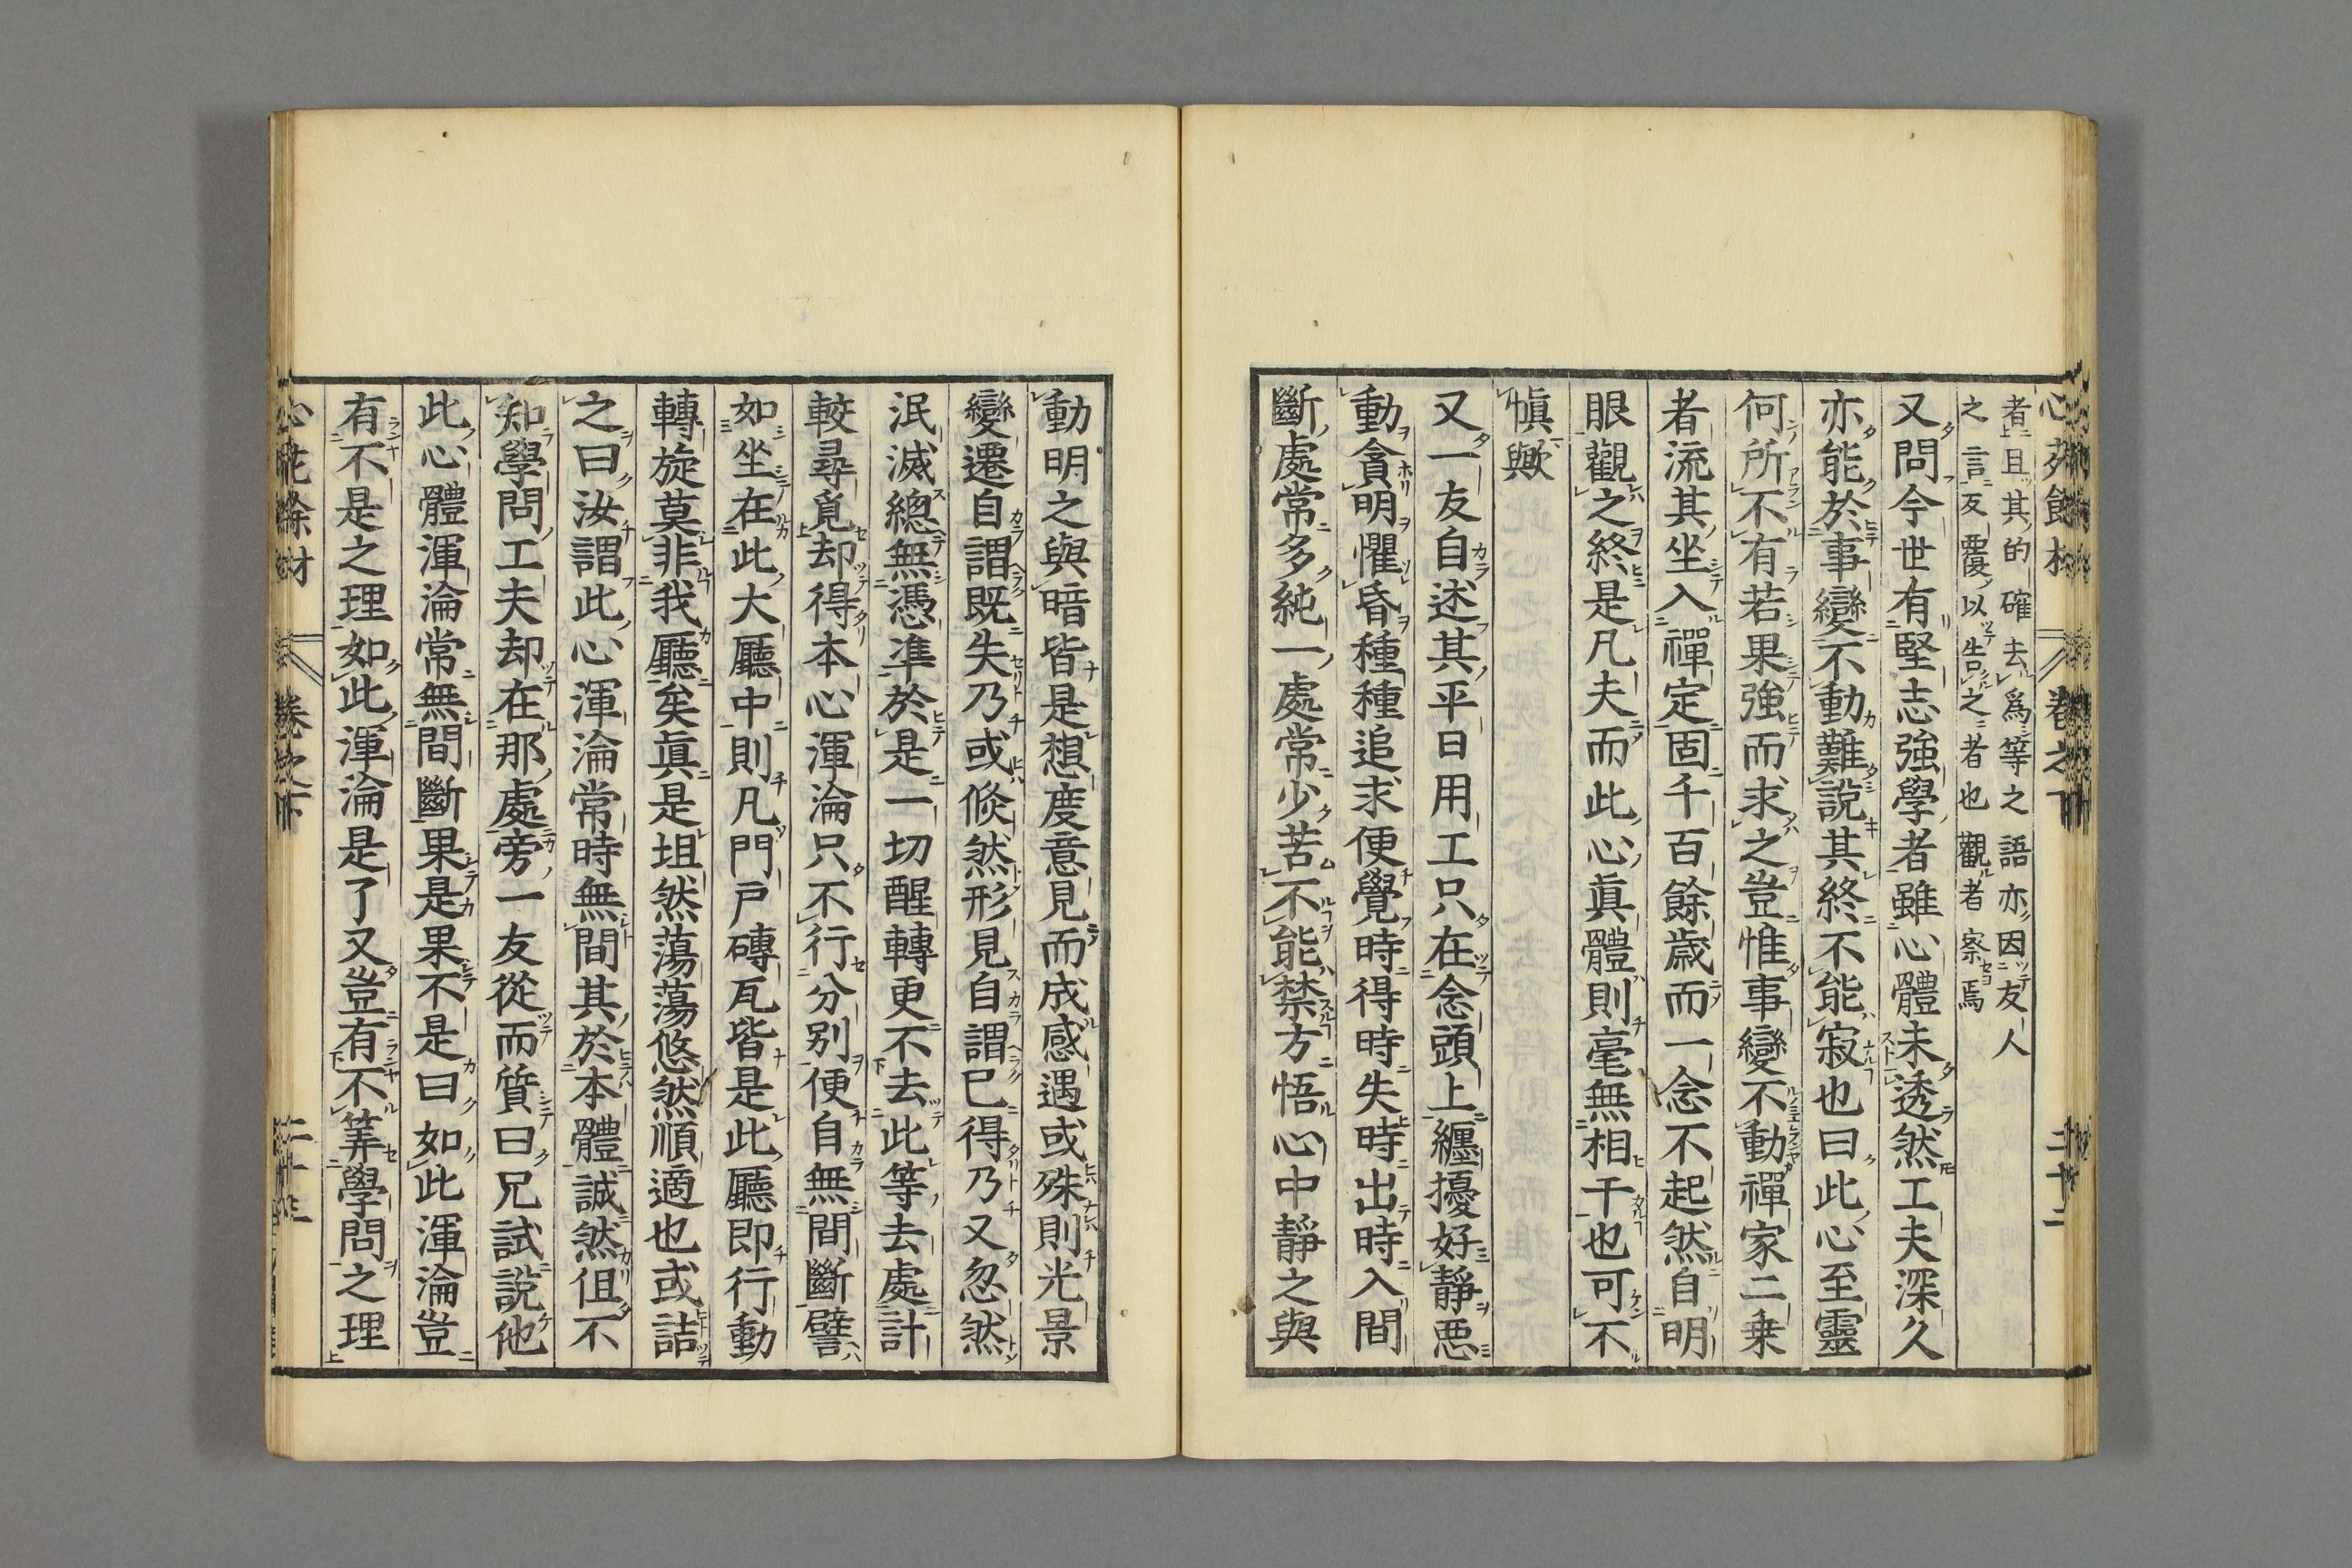 者且其的確去爲等之語亦因友人
之言反覆以告之者也觀者察焉
又問今世有堅志強學者雖心體未透然工夫深久
亦能於事變不動難說其終不能寂也曰此心至靈
何所不有若果強而求之豈惟事變不動禪家二乗
者流其坐入禪定固千百餘歲而一念不起然自明
眼觀之終是凡夫而此心眞體則毫無相干也可不
愼歟
又一友自述其平日用工只在念頭上纏擾好靜惡
動貪明懼昏種種追求便覺時得時失時出時入間
斷處常多純一處常少苦不能禁方悟心中靜之與
動明之與暗皆是想度意見而成感遇或殊則光景
變遷自謂既失乃或倐然形見自謂已得乃又忽然
泯滅總無憑準於是一切醒轉更不去此等去處計
較尋覓却得本心渾淪只不行分别便自無間斷譬
如坐在此大廳中則凡門戸磚瓦皆是此廳即行動
轉旋莫非我廳矣眞是坦然蕩蕩悠然順適也或詰
之曰汝謂此心渾淪常時無間其於本體誠然但不
知學問工夫却在那處旁一友從而質曰兄試說他
此心體渾淪常無間斷果是果不是曰如此渾淪豈
有不是之理如此渾淪是了又豈有不筭學問之理
卷之下